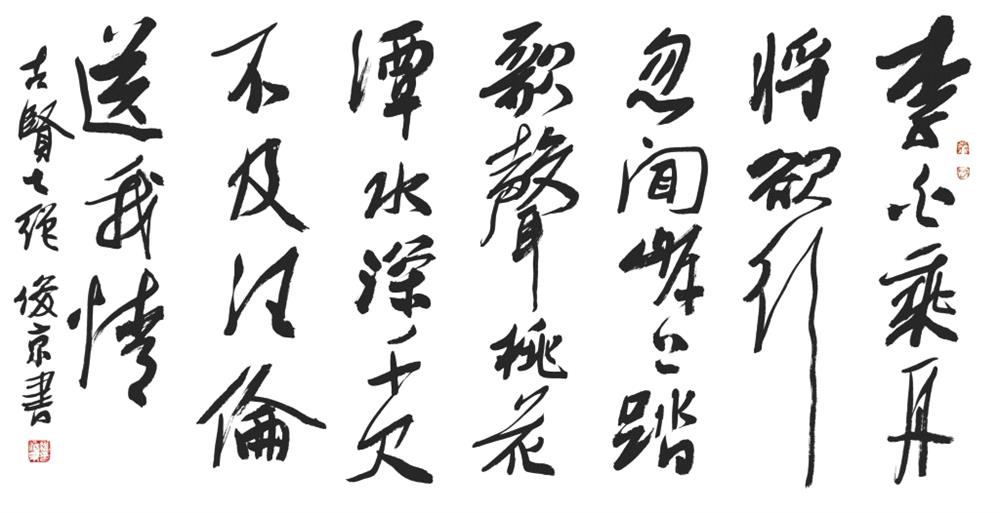 李白乘舟
將欲行
忽聞岸上踏
歌聲桃花
潭水深千尺
不及汪倫
送我情
古賢七絕 俊京書